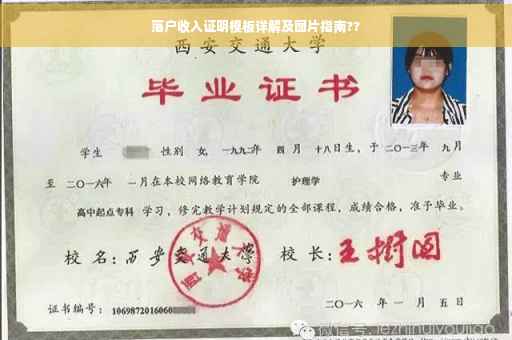 落户收入证明模板详解及图片指南??
西安交通大学
毕业证书
学生 性别 女, 一九九二年 四月 十八日生, 于 二〇一三年 九月
至 二〇一六年 一月在本校网络教育学院 护理学 专业
高中起点专科 学习, 修完教学计划规定的全部课程, 成绩合格, 准予毕业。
校名: 西安交通大学 校长: 王树国
西安交通大学
证书编号: 1069872016060
二〇一六年 一月 五日
微信号: lezhinuiyoujiao